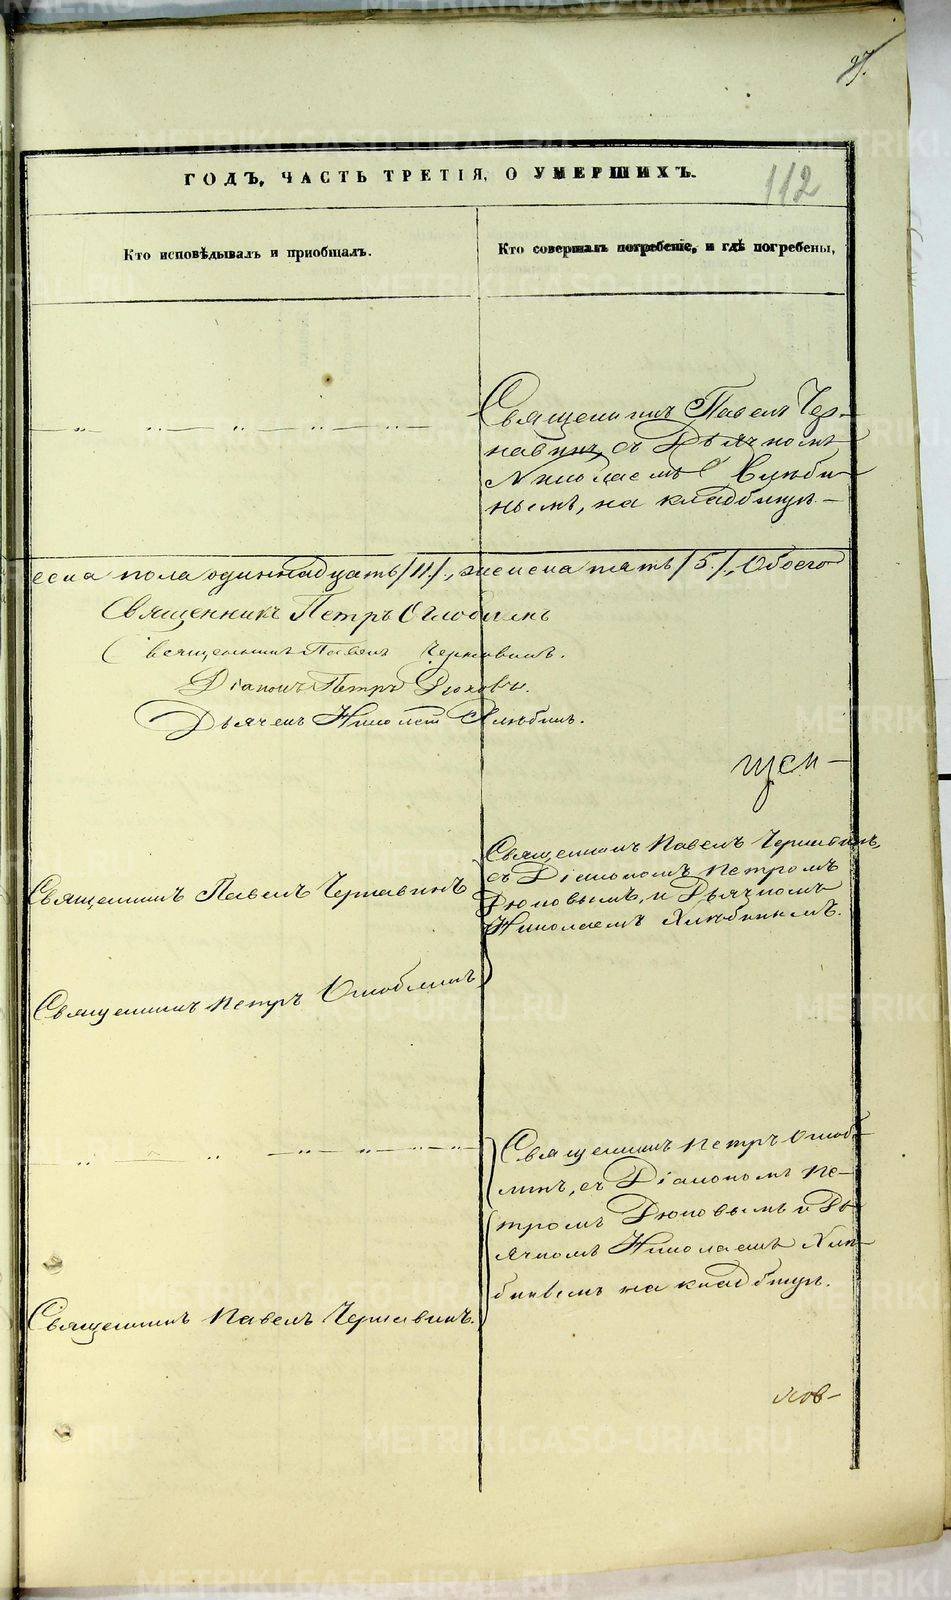 27.
ГОДЪ, ЧАСТЬ ТРЕТІЯ, О УМЕРШИХЪ.
112
Кто исповѣдывалъ и пріобщалъ.
Кто совершалъ погребеніе, и гдѣ погребены,
Священникъ Павелъ Чер-
навинъ, съ Дьячкомъ
Николаемъ
нымъ, на кладбищѣ. —
пола одиннадцать /11./, женска пять /5./, Обоего
Священникъ Петръ Оглоблинъ
Священникъ Павелъ Чернавинъ.
Діаконъ Петръ Дюковъ.
Дьячекъ Николай Хлѣбинъ.
Священникъ Павелъ Чернавинъ
Священникъ Павелъ Чернавинъ,
съ Діакономъ Петромъ
Дюковымъ, и Дьячкомъ
Николаемъ Хлѣбинымъ.
Священникъ Петръ Оглоблинъ
Священникъ Петръ Оглоб-
линъ, съ Діакономъ Пе-
тромъ Дюковымъ и Дь-
ячкомъ Николаемъ Хлѣ-
бинымъ на кладбищѣ.
Священникъ Павелъ Чернавинъ.
METRIKI.GASO-URAL.RU